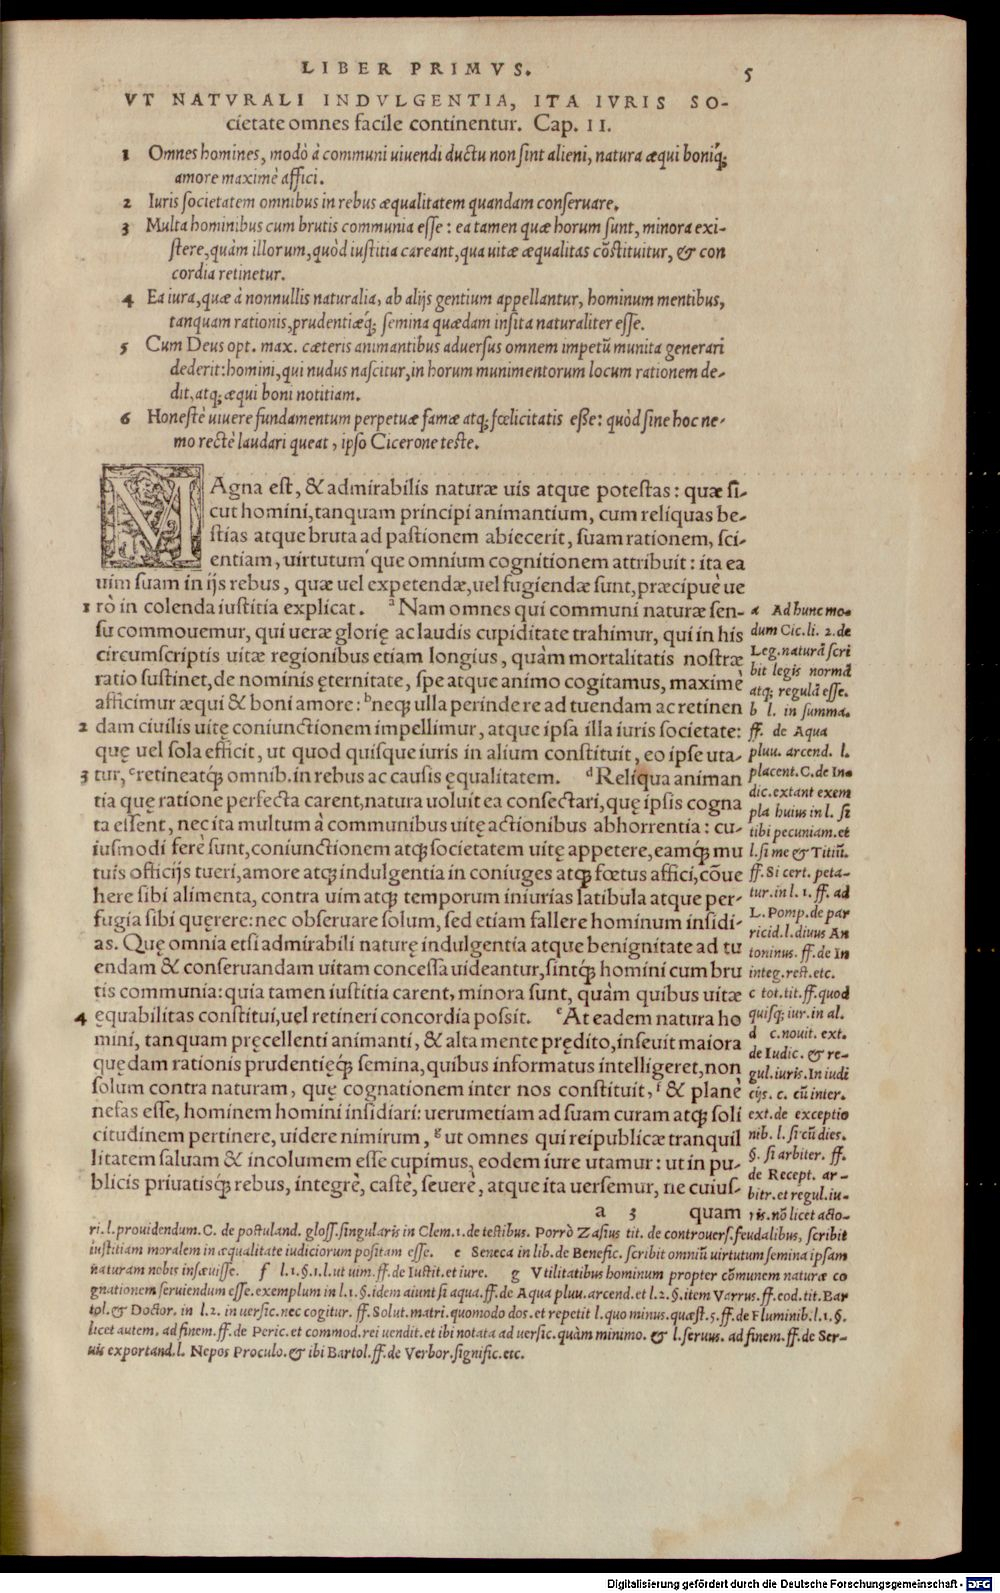 LIBER PRIMVS. 5
VT NATVRALI INDVLGENTIA, ITA IVRIS SO-
cietate omnes facile continentur. Cap. II.
1 Omnes homines, modò à communi uiuendi ductu non sint alieni, natura æqui boniq́;
amore maximè affici.
2 Iuris societatem omnibus in rebus æqualitatem quandam conseruare.
3 Multa hominibus cum brutis communia esse: ea tamen quæ horum sunt, minora exi-
stere, quàm illorum, quòd iustitia careant, qua uitæ æqualitas cõstituitur, & con
cordia retinetur.
4 Ea iura, quæ à nonnullis naturalia, ab alijs gentium appellantur, hominum mentibus,
tanquam rationis, prudentiæq́; semina quædam insita naturaliter esse.
5 Cum Deus opt. max. cæteris animantibus aduersus omnem impetũ munita generari
dederit: homini, qui nudus nascitur, in horum munimentorum locum rationem de-
dit, atq; æqui boni notitiam.
6 Honestè uiuere fundamentum perpetuæ famæ atq; fœlicitatis esse: quòd sine hoc ne-
mo rectè laudari queat, ipso Cicerone teste.
MAgna est, & admirabilis naturæ uis atque potestas: quæ si-
cut homini, tanquam principi animantium, cum reliquas be-
stias atque bruta ad pastionem abiecerit, suam rationem, sci-
entiam, uirtutuḿque omnium cognitionem attribuit: ita ea
uim suam in ijs rebus, quæ uel expetendæ, uel fugiendæ sunt, præcipuè ue
1 rò in colenda iustitia explicat. ᵃ Nam omnes qui communi naturæ sen-
su commouemur, qui ueræ glorię ac laudis cupiditate trahimur, qui in his
circumscriptis uitæ regionibus etiam longius, quàm mortalitatis nostræ
ratio sustinet, de nominis ęternitate, spe atque animo cogitamus, maximè
afficimur æqui & boni amore: ᵇ neq; ulla perinde re ad tuendam ac retinen
2 dam ciuilis uitę coniunctionem impellimur, atque ipsa illa iuris societate:
quę uel sola efficit, ut quod quisque iuris in alium constituit, eo ipse uta-
3 tur, ᶜ retineatq́; omnib. in rebus ac causis ęqualitatem. ᵈ Reliqua animan
tia quę ratione perfecta carent, natura uoluit ea consectari, quę ipsis cogna
ta essent, nec ita multum à communibus uitę actionibus abhorrentia: cu-
iusmodi ferè sunt, coniunctionem atq; societatem uitę appetere, eamq́; mu
tuis officijs tueri, amore atq; indulgentia in coniuges atq; fœtus affici, cõue
here sibi alimenta, contra uim atq; temporum iniurias latibula atque per-
fugia sibi quęrere: nec obseruare solum, sed etiam fallere hominum insidi-
as. Quę omnia etsi admirabili naturę indulgentia atque benignitate ad tu
endam & conseruandam uitam concessa uideantur, sintq́; homini cum bru
tis communia: quia tamen iustitia carent, minora sunt, quàm quibus uitæ
4 ęquabilitas constitui, uel retineri concordia possit. ᵉ At eadem natura ho
mini, tanquam pręcellenti animanti, & alta mente prędito, inseuit maiora
quędam rationis prudentięq́; semina, quibus informatus intelligeret, non
solum contra naturam, quę cognationem inter nos constituit, ᶠ & planè
nefas esse, hominem homini insidiari: uerumetiam ad suam curam atq; soli
citudinem pertinere, uidere nimirum, ᵍ ut omnes qui reipublicæ tranquil
litatem saluam & incolumem esse cupimus, eodem iure utamur: ut in pu-
blicis priuatisq́; rebus, integrè, castè, seuerè, atque ita uersemur, ne cuius-
a 3 quam
a Ad hunc mo-
dum Cic. li. 2. de
Leg. naturã scri
bit legis normã
atq; regulã esse.
b l. in summa.
ff. de Aqua
pluu. arcend. l.
placent. C. de In-
dic. extant exem
pla huius in l. si
tibi pecuniam. et
l. si me & Titiũ.
ff. Si cert. peta-
tur. in l. 1. ff. ad
L. Pomp. de par
ricid. l. diuus An
toninus. ff. de In
integ. rest. etc.
c tot. tit. ff. quod
quisq; iur. in al.
d c. nouit. ext.
de Iudic. & re-
gul. iuris. In iudi
cijs. c. cũ inter.
ext. de exceptio
nib. l. si cũ dies.
§. si arbiter. ff.
de Recept. ar-
bitr. et regul. iu-
ris. nõ licet acto-
ri. l. prouidendum. C. de postuland. gloss. singularis in Clem. 1. de testibus. Porrò Zasius tit. de controuers. feudalibus, scribit
iustitiam moralem in æqualitate iudiciorum positam esse. e Seneca in lib. de Benefic. scribit omniũ uirtutum semina ipsam
naturam nobis inseuisse. f l. 1. §. 1. l. ut uim. ff. de Iustit. et iure. g Vtilitatibus hominum propter cõmunem naturæ co
gnationem seruiendum esse. exemplum in l. 1. §. idem aiunt si aqua. ff. de Aqua pluu. arcend. et l. 2. §. item Varrus. ff. eod. tit. Bar
tol. & Doctor. in l. 2. in uersic. nec cogitur. ff. Solut. matri. quomodo dos. et repetit l. quo minus. quæst. 5. ff. de Fluminib. l. 1. §.
licet autem, ad finem. ff. de Peric. et commod. rei uendit. et ibi notata ad uersic. quàm minimo. & l. seruus. ad finem. ff. de Ser-
uis exportand. l. Nepos Proculo. & ibi Bartol. ff. de Verbor. signific. etc.
Digitalisierung gefördert durch die Deutsche Forschungsgemeinschaft - DFG